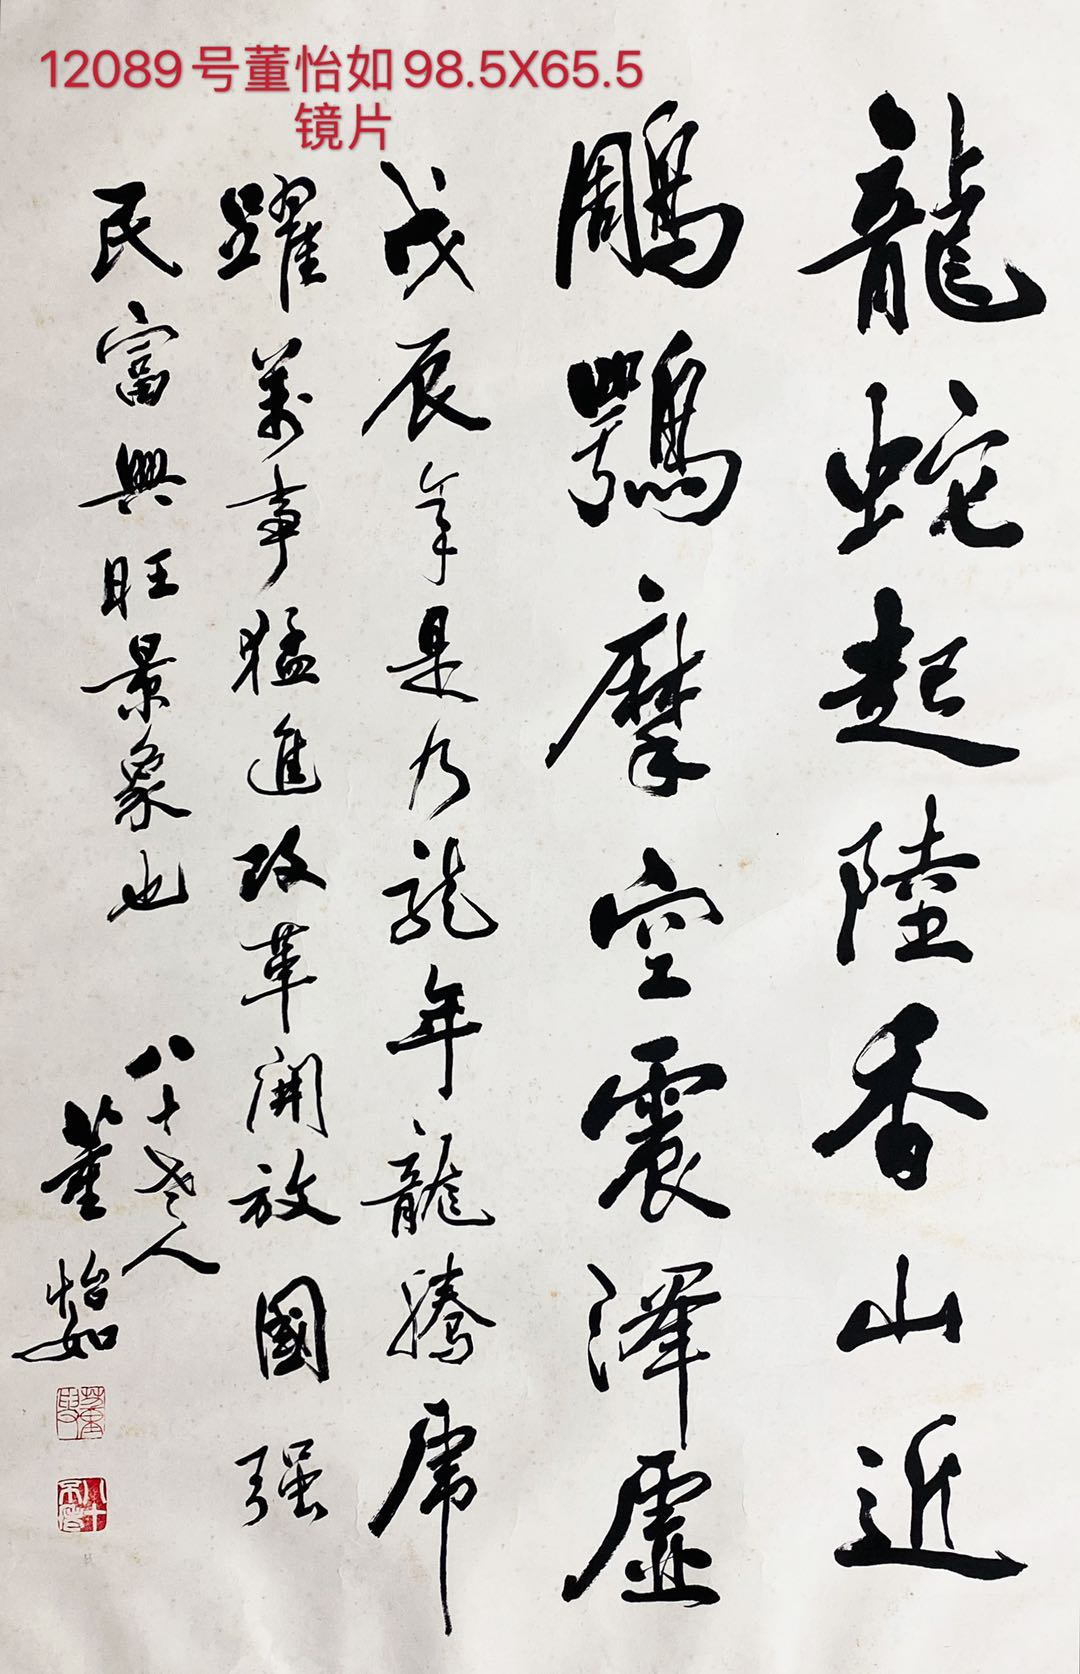 12089号董怡如98.5X65.5
镜片
龍蛇起陸香山近
鵰鶚摩空震澤虛
戊辰年是乃龙年龍騰虎
躍萬事猛進改革開放國强
民富興旺景象也
八十老人
董怡如
八十